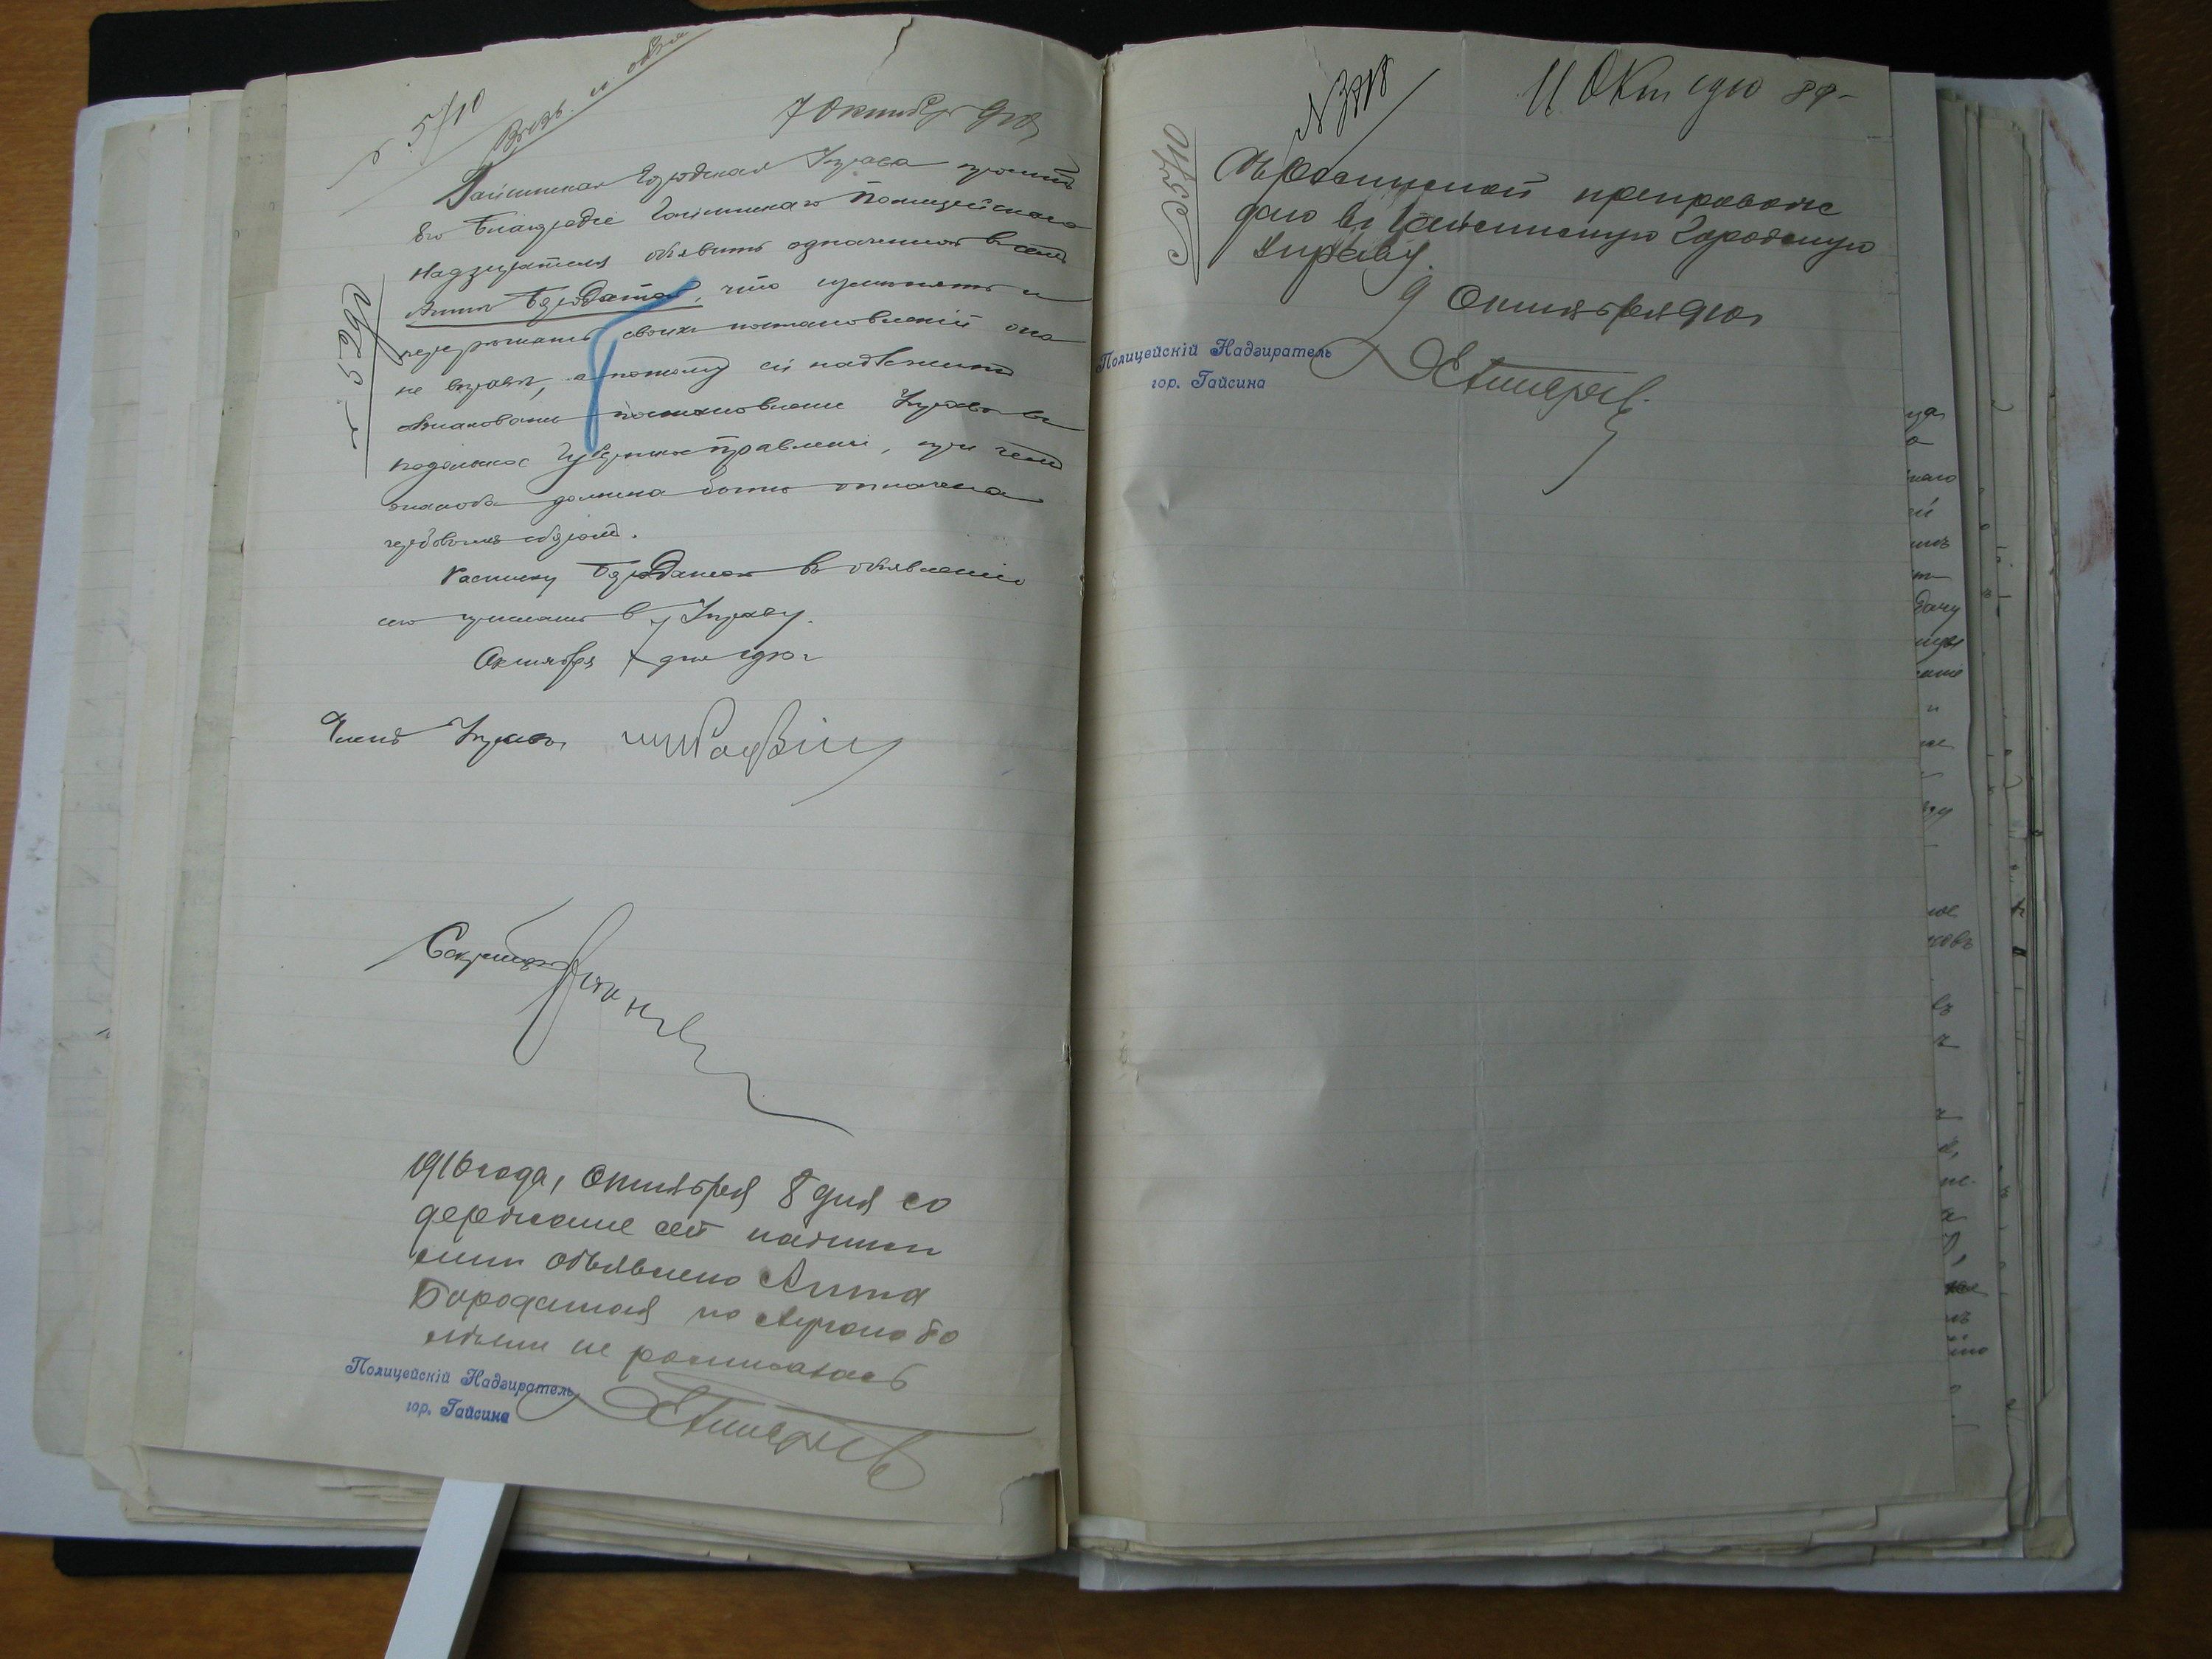 5/10
7 Октября 910
Гайсинская Городская Управа просит
Его Благородіе Гайсинскаго Полицейскаго
Надзирателя объявить означенной в сем
Анне Бородатой, что изменять и
своих постановленій она
не вправе, а потому ей надлежит
обжаловать постановление Управы в
Подольское Губернское Правление, при чем
жалоба должна быть оплачена
гербовым сбором.
Расписку Бородатой в объявлении
сего прислать в Управу.
Октября 7 дня 1910 г
Член Управы
Секретарь
1910 года, Октября 8 дня со
держание сей надписи
мни объявлено Анна
Бородатая по
не росписалась
Полицейскій Надзиратель
гор. Гайсина
11 Окт 1910 89
С роспиской препровож
даю в Гайсинскую Городскую
Управу.
9 Октября 910
Полицейскій Надзиратель
гор. Гайсина